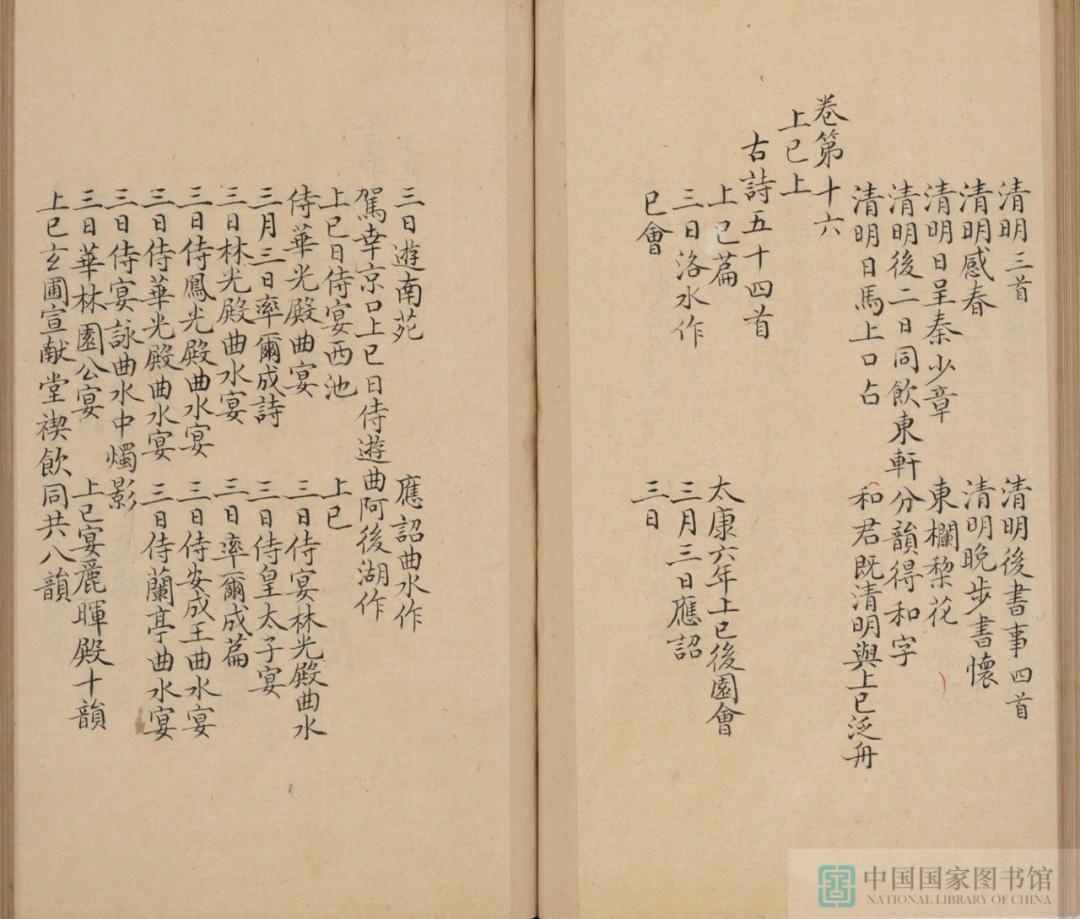 清明三首　清明後書事四首
清明感春　清明晚步書懷
清明日呈秦少章　東欄梨花
清明後二日同飲東軒分韻得和字
清明日馬上口占　和君既清明與上巳泛舟
卷第十六
上巳上
古詩五十四首
上巳篇　太康六年上巳後園會
三日洛水作　三月三日應詔
巳會　三日
三日遊南苑　應詔曲水作
駕幸京口上巳日侍遊曲阿後湖作
上巳日侍宴西池　上巳
侍華光殿曲宴　三日侍宴林光殿曲水
三月三日率爾成詩　三日侍皇太子宴
三日林光殿曲水宴　三日率爾成篇
三日侍鳳光殿曲水宴　三日侍安成王曲水宴
三日侍華光殿曲水宴　三日侍蘭亭曲水宴
三日侍宴詠曲水中燭影
三日華林園公宴　上巳宴麗暉殿十韻
上巳玄圃宣猷堂禊飲同共八韻
中国国家图书馆
NATIONAL LIBRARY OF CHINA